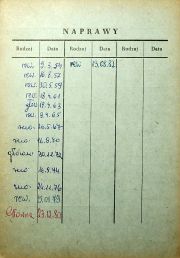 NAPRAWY
Rodzaj Data Rodzaj Data Rodzaj Data
rew. 9.3.54 rew 13.08.82
rew. 16.8.57
rew. 20.5.59
rew. 18.4.61
gł. 18.9.63
rew. 8.4.65
20.5.67
rew.
główna 20.12.72
rew. 16.8.74
rew. 24.11.76
rew. 15.01.79
Główna 29.12.80